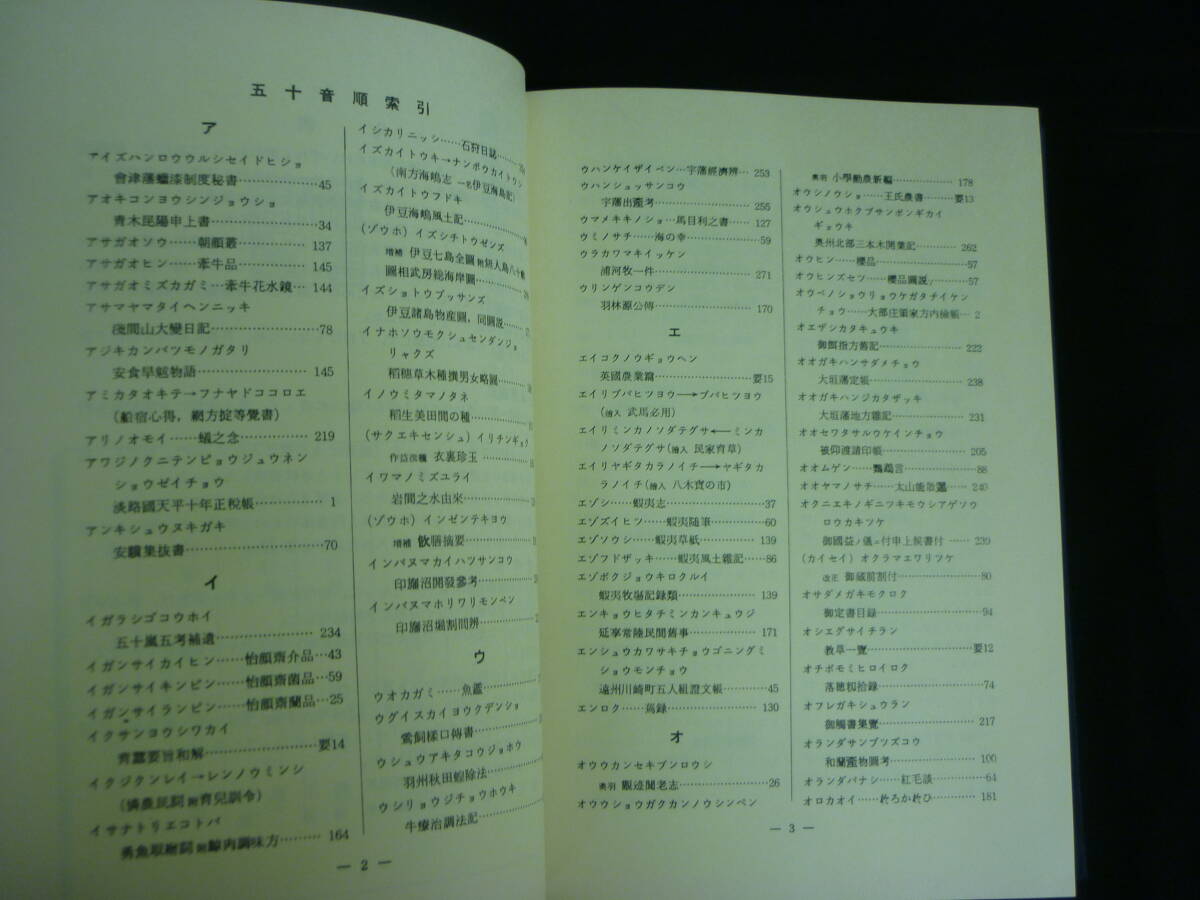 五十音順索引
ア
アイズハンロウウルシセイドヒショ
會津藩蠟漆制度秘書……………45
アオキコンヨウシンジョウショ
青木昆陽申上書……………34
アサガオソウ……朝顔叢……………137
アサガオヒン……牽牛品……………145
アサガオミズカガミ…牽牛花水鏡…144
アサマヤマタイヘンニッキ
淺間山大變日記……………78
アジキカンバツモノガタリ
安食旱魃物語……………145
アミカタオキテ→フナヤドココロエ
(船宿心得，網方掟等覺書)
アリノオモイ……蟻之念……………219
アワジノクニテンピョウジュウネン
ショウゼイチョウ
淡路國天平十年正稅帳……………1
アンキシュウヌキガキ
安驥集抜書……………70
イ
イガラシゴコウホイ
五十嵐五考補遺……………234
イガンサイカイヒン……怡顏齋介品…43
イガンサイキンピン……怡顏齋菌品…59
イガンサイランピン……怡顏齋蘭品…25
イクサンヨウシワカイ
育蠶要旨和解……………要14
イクジクンレイ→レンノウミンシ
(憐農民詞 附育兒訓令)
イサナトリエコトバ
勇魚取繪詞 附鯨肉調味方………164
— 2 —
イシカリニッシ……石狩日誌……
イズカイトウキ→ナンポウカイトウシ
(南方海嶋志 一名伊豆海島記)
イズカイトウフドキ
伊豆海嶋風土記……………
(ゾウホ) イズシチトウゼンズ
增補 伊豆七島全圖 附無人島八十嶼
圖相武房総海岸圖……………
イズショトウブッサンズ
伊豆諸島物産圖，同圖説……
イナホソウモクシュセンダンジョ
リャクズ
稻穗草木種撰男女略圖…………
イノウミタマノタネ
稻生美田間の種……………
(サクエキセンシュ) イリチンギョク
衣裏珍玉……………
イワマノミズユライ
岩間之水由來……………
(ゾウホ) インゼンテキヨウ
增補 飮膳摘要……………
インバヌマカイハツサンコウ
印旛沼開發參考……………
インバヌマホリワリモンベン
印旛沼堀割問辨……………
ウ
ウオカガミ……魚鑑……………
ウグイスカイヨウクデンショ
鶯飼樣口傳書……………
ウシュウアキタコウジョホウ
羽州秋田蝗除法……………
ウシリョウジチョウホウキ
牛療治調法記……………
ウハンケイザイベン…宇藩經濟辨…253
ウハンシュッサンコウ
宇藩出產考……………255
ウマメキキノショ…馬目利之書……127
ウミノサチ……海の幸……………59
ウラカワマキイッケン
浦河牧一件……………271
ウリンゲンコウデン
羽林源公傳……………170
エ
エイコクノウギョウヘン
英國農業篇……………要15
エイリブバヒツヨウ→ブバヒツヨウ
(繪入 武馬必用)
エイリミンカノソダテグサ←ミンカ
ノソダテグサ(繪入 民家育草)
エイリヤギタカラノイチ→ヤギタカ
ラノイチ(繪入 八木寶の市)
エゾシ……蝦夷志……………37
エゾズイヒツ……蝦夷随筆…………60
エゾソウシ……蝦夷草紙……………139
エゾフドザッキ……蝦夷風土雜記……86
エゾボクジョウキロクルイ
蝦夷牧場記録類……………139
エンキョウヒタチミンカンキュウジ
延享常陸民間舊事……………171
エンシュウカワサキチョウゴニングミ
ショウモンチョウ
遠州川崎町五人組證文帳…………45
エンロク……鳫録……………130
オ
オウウカンセキブンロウシ
奥羽 觀迹聞老志……………26
オウウショウガクカンノウシンペン
奥羽 小學勸農新編……………178
オウシノウショ……王氏農書……要13
オウシュウホクブサンボンギカイ
ギョウキ
奥州北部三本木開業記…………262
オウヒン……櫻品……………57
オウヒンズセツ……櫻品圖説………57
オウベノショウリョウケガタチイケン
チョウ……大部庄領家方内檢帳…2
オエザシカタキュウキ
御餌指方舊記……………222
オオガキハンサダメチョウ
大垣藩定帳……………238
オオガキハンジカタザッキ
大垣藩地方雜記……………231
オオセワタサルウケインチョウ
被仰渡請印帳……………205
オオムゲン……鸚鵡言……………88
オオヤマノサチ……太山能𢮦……240
オクニエキノギニツキモウシアゲソウ
ロウカキツケ
御國益ノ儀ニ付申上候書付……239
(カイセイ) オクラマエワリツケ
改正 御蔵前割付……………80
オサダメガキモクロク
御定書目録……………94
オシエグサイチラン
教草一覽……………要12
オチボモミヒロイロク
落穗籾拾録……………74
オフレガキシュウラン
御觸書集覽……………217
オランダサンブツズコウ
和蘭產物圖考……………100
オランダバナシ……紅毛談…………64
オロカオイ……於ろか於ひ………181
— 3 —